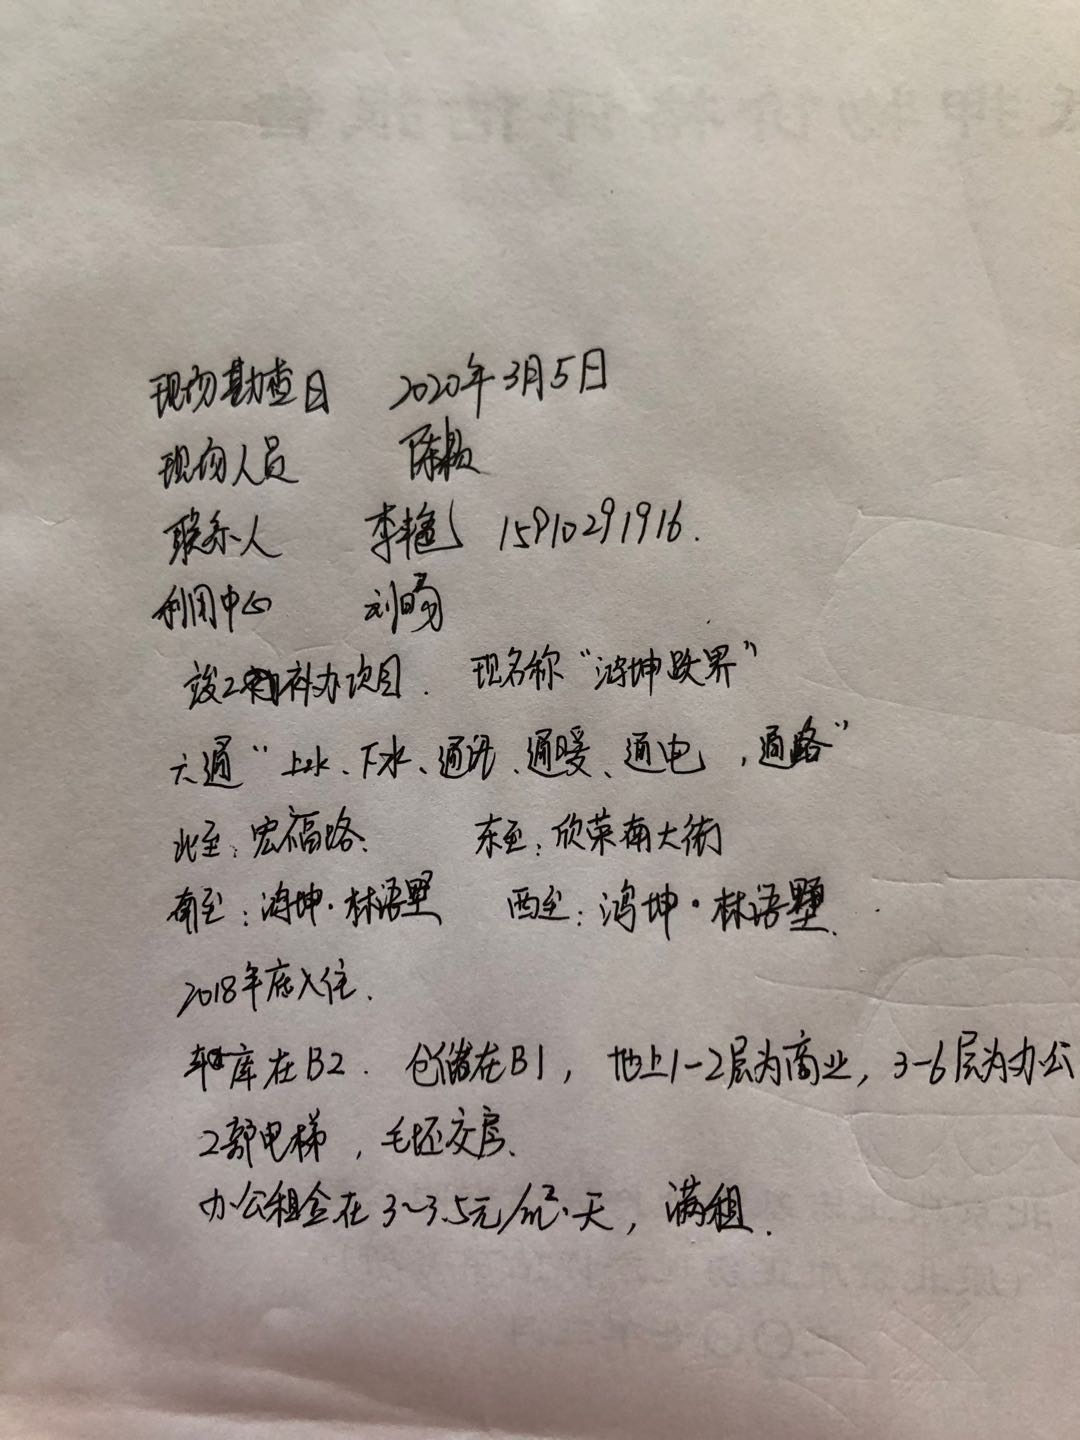 现场勘查日 2020年3月5日
现场人员 陈颖
联系人 李艳 15910291916.
利用中心 刘旸
竣工补办项目. 现名称“鸿坤跃界”
六通“上水、下水、通讯、通暖、通电,通路”
北至:宏福路. 东至:欣荣南大街
南至:鸿坤·林语墅 西至:鸿坤·林语墅.
2018年底入住.
车库在B2. 仓储在B1,地上1-2层为商业,3-6层为办公
2部电梯,毛坯交房.
办公租金在3~3.5元/m²·天,满租.